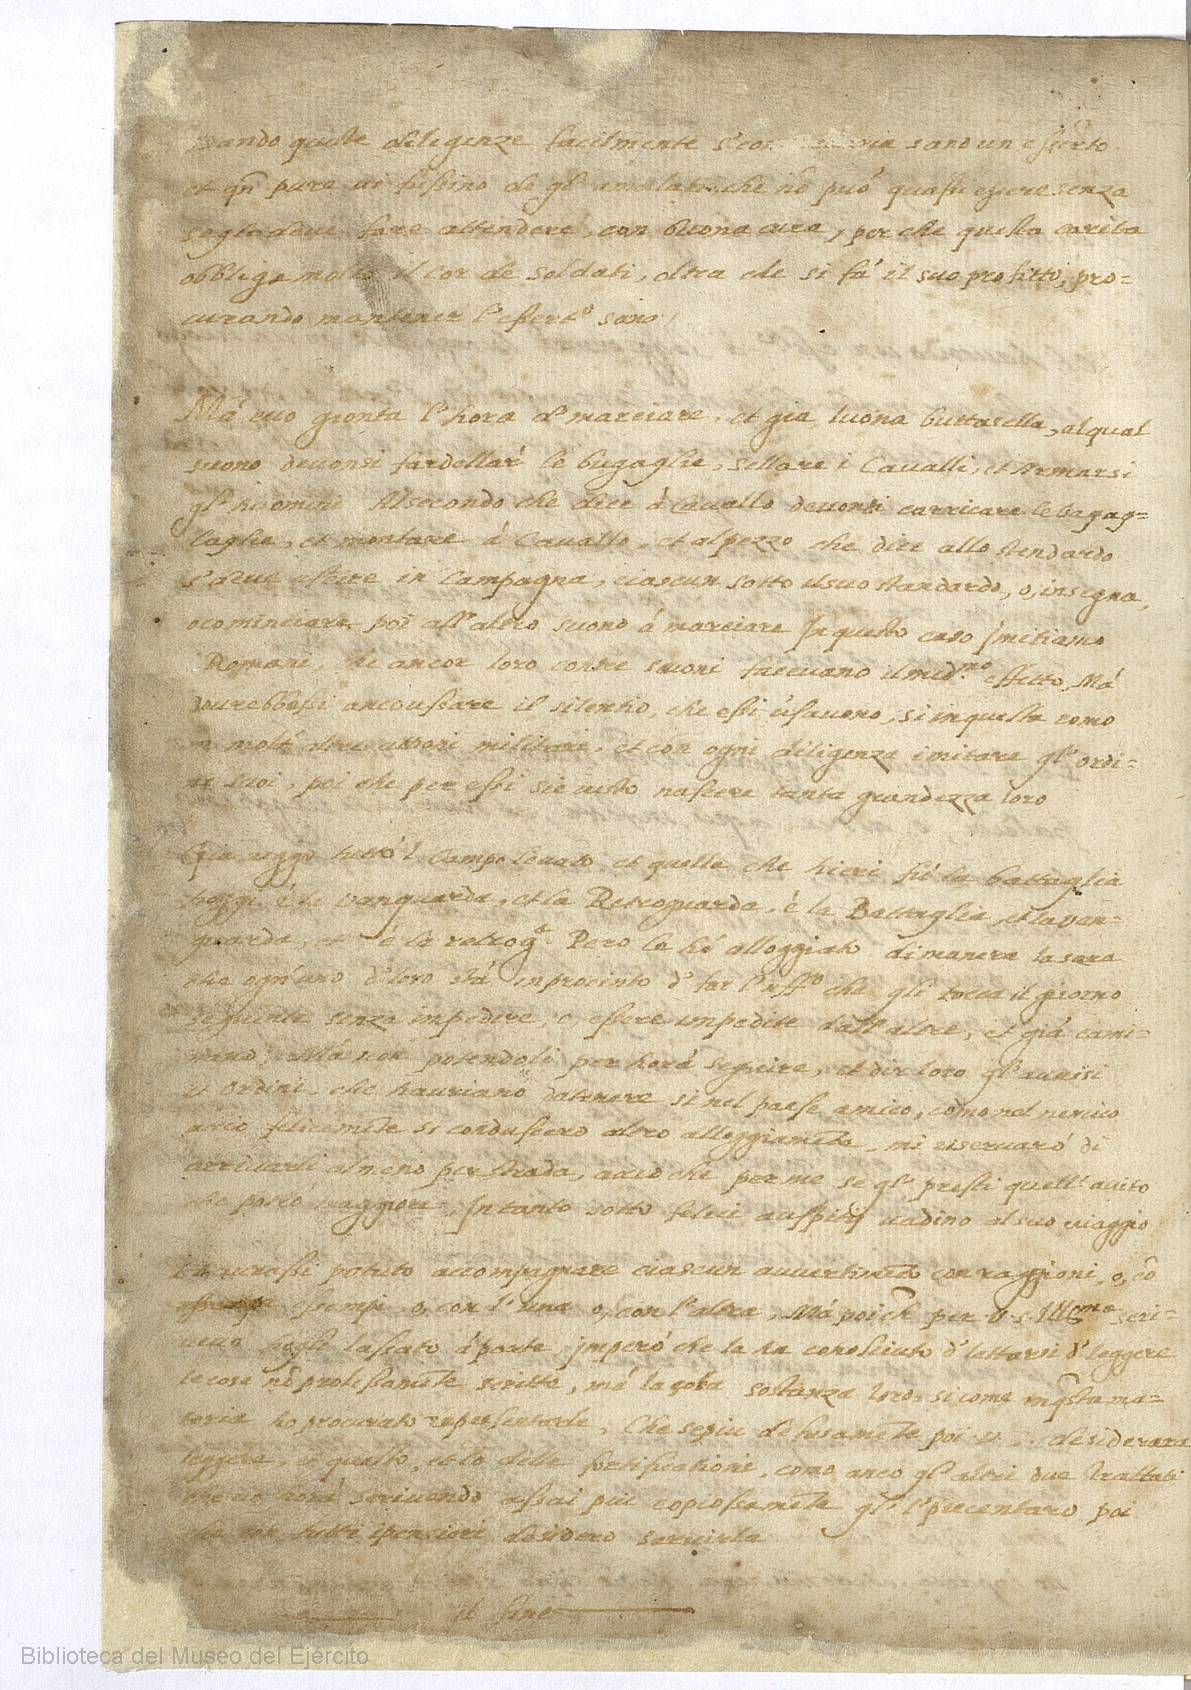 sando queste diligenze facilmente s'con sano un esserto
et qñ pure vi fussino de gl' amalati che nõ può quassi essere senza
se gla deve fare attendere, con buona cura, perche questa carita
obbliga molto il cor de soldati, oltra che si fà il suo profitto, pro=
curando mantener l'essert.º sano
Mà ecco gionta l'hora d' marciare, et gia suona buttasella, al qual
suono devonsi fardellar le bagaglie, sellare i Cavalli, et Armarsi
gl' huomini Al secondo che dice à Cavallo devonsi carricare le bagag=
laglie, et montare à Cavallo, et al pezzo che dice allo stendardo
s'deve essere in Campagna, ciascun sotto il suo standardo, o, insegna,
o cominciare poi all' altro suono à marciare In questo caso Imitiamo
Romani, che ancor loro con tre suoni facevano il med.mo effetto, Mà
dovrebbesi anco ussare il silentio, che essi usavono, si in questa como
in molti altre attioni militari, et con ogni diligenza imitare gl' ordi=
ni suoi, poi che per essi si è visto nascere tanta grandezza loro
Gia veggo tutto 'l Campo levato et quella che hieri fù la battaglia
hoggi è la vanguarda, et la Retroguarda, è la Battaglia, et la van=
guarda, è la retrog.ª Però le hò alloggiato di manera
che ogn'uno d' loro stà in procinto d' far l'uff.º che gli tocca il giorno
seguente senza impedire, o, essere impedite dall' altre, et già cami=
nano, Mà non potendoli per hora seguire, et dir loro gl' avvisi
et ordini, che hauriano da tenere si nel paese amico, como nel nemico
acciò felicemẽte si conducessero altro alloggiamẽto, mi riservarò di
arrivarli almeno per strada, acciò che per me se gl' presti quell' aiuto
che potrò maggiore, In tanto sotto felici auspitij vadino al suo viaggio
potuto accompagnare ciascun avvertimẽto con raggioni, o, cõ
essempi, o, con l' una o, con l'altra, Mà poi ch̃ per V.S. Ill.ma scri=
vevo hogli lasciato à parte, imperò che la ha conosciuto d'lettarsi d' leggere
le cose nõ prolissamẽte scritte, mà la sola sostanza loro, si come in q̃sta ma=
teria ho procurato representarle, Che se piu diffusamẽte poi V.S. desiderara
leggere, et questo, et lo delle fortificationi, como anco gl' altri due trattati
che vò hora scrivendo assai piu copiosamẽte gl' l'presentarò poi
che con tutti i pensieri desidero servirla
il fine
Biblioteca del Museo del Ejército